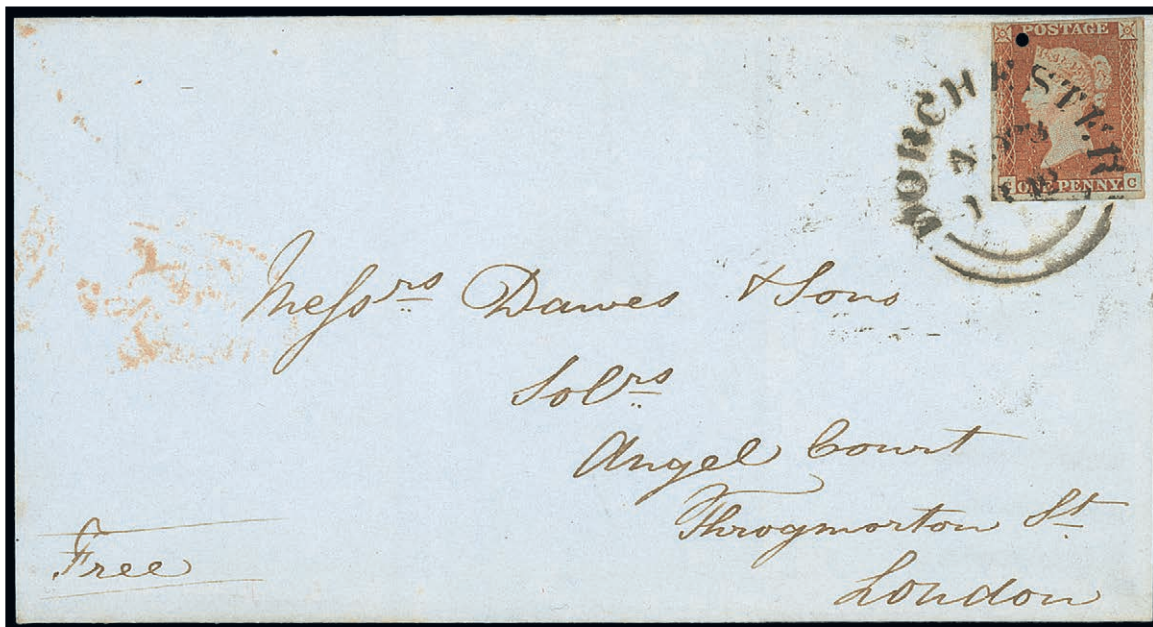 POSTAGE
DORCHESTER
C ONE PENNY C
Messrs Dawes & Sons
Solrs
Angel Court
Throgmorton St
London
Free